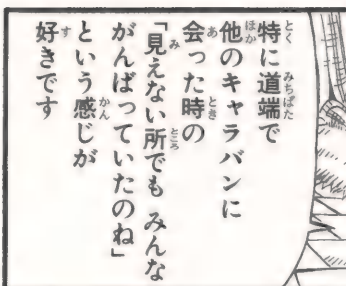 特に道端で
他のキャラバンに
会った時の
「見えない所でも みんな
がんばっていたのね」
という感じが
好きです